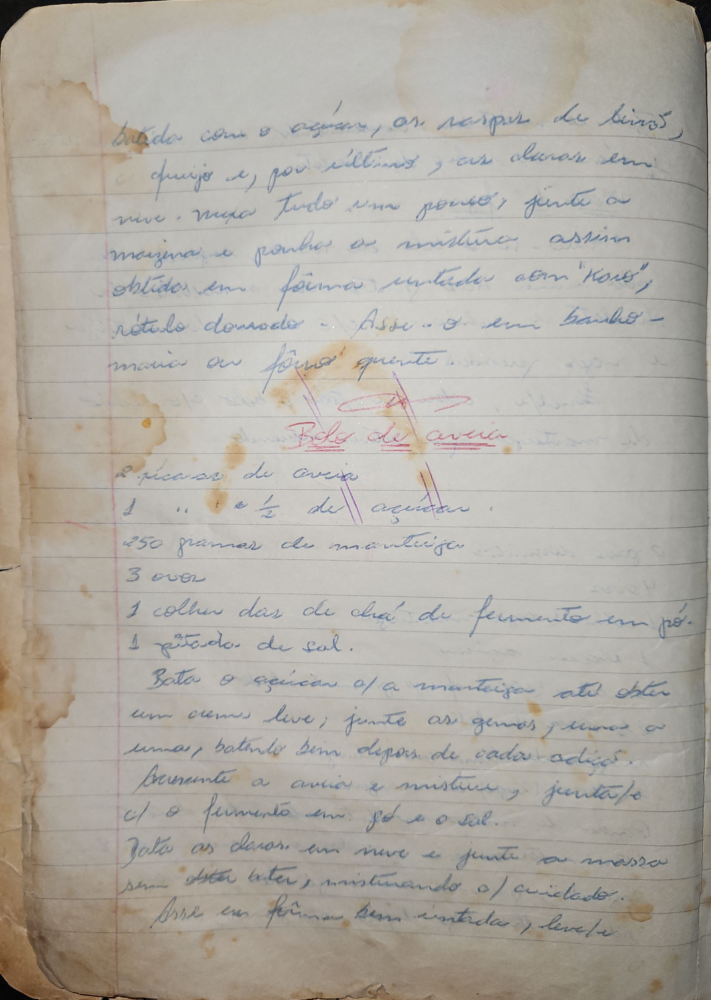 batida com o açúcar, as raspas de limão,
queijo e, por último, as claras em
neve. Mexa tudo um pouco, junte a
maizena e ponha a mistura assim
obtida em fôrma untada com "Karo",
rótulo dourado. Asse-o em banho-
maria ou fôrno quente
Bolo de aveia
2 xícaras de aveia
1 " " e 1/2 de açúcar.
250 gramas de manteiga
3 ovos
1 colher das de chá de fermento em pó.
1 pitada de sal.
Bata o açúcar c/ a manteiga até obter
um creme leve; junte as gemas, uma a
uma, batendo bem depois de cada adição.
Acrescente a aveia e misture, junta/e
c/ o fermento em pó e o sal.
Bata as claras em neve e junte a massa
sem bater, misturando c/ cuidado.
Asse em fôrma bem untada, leve/e